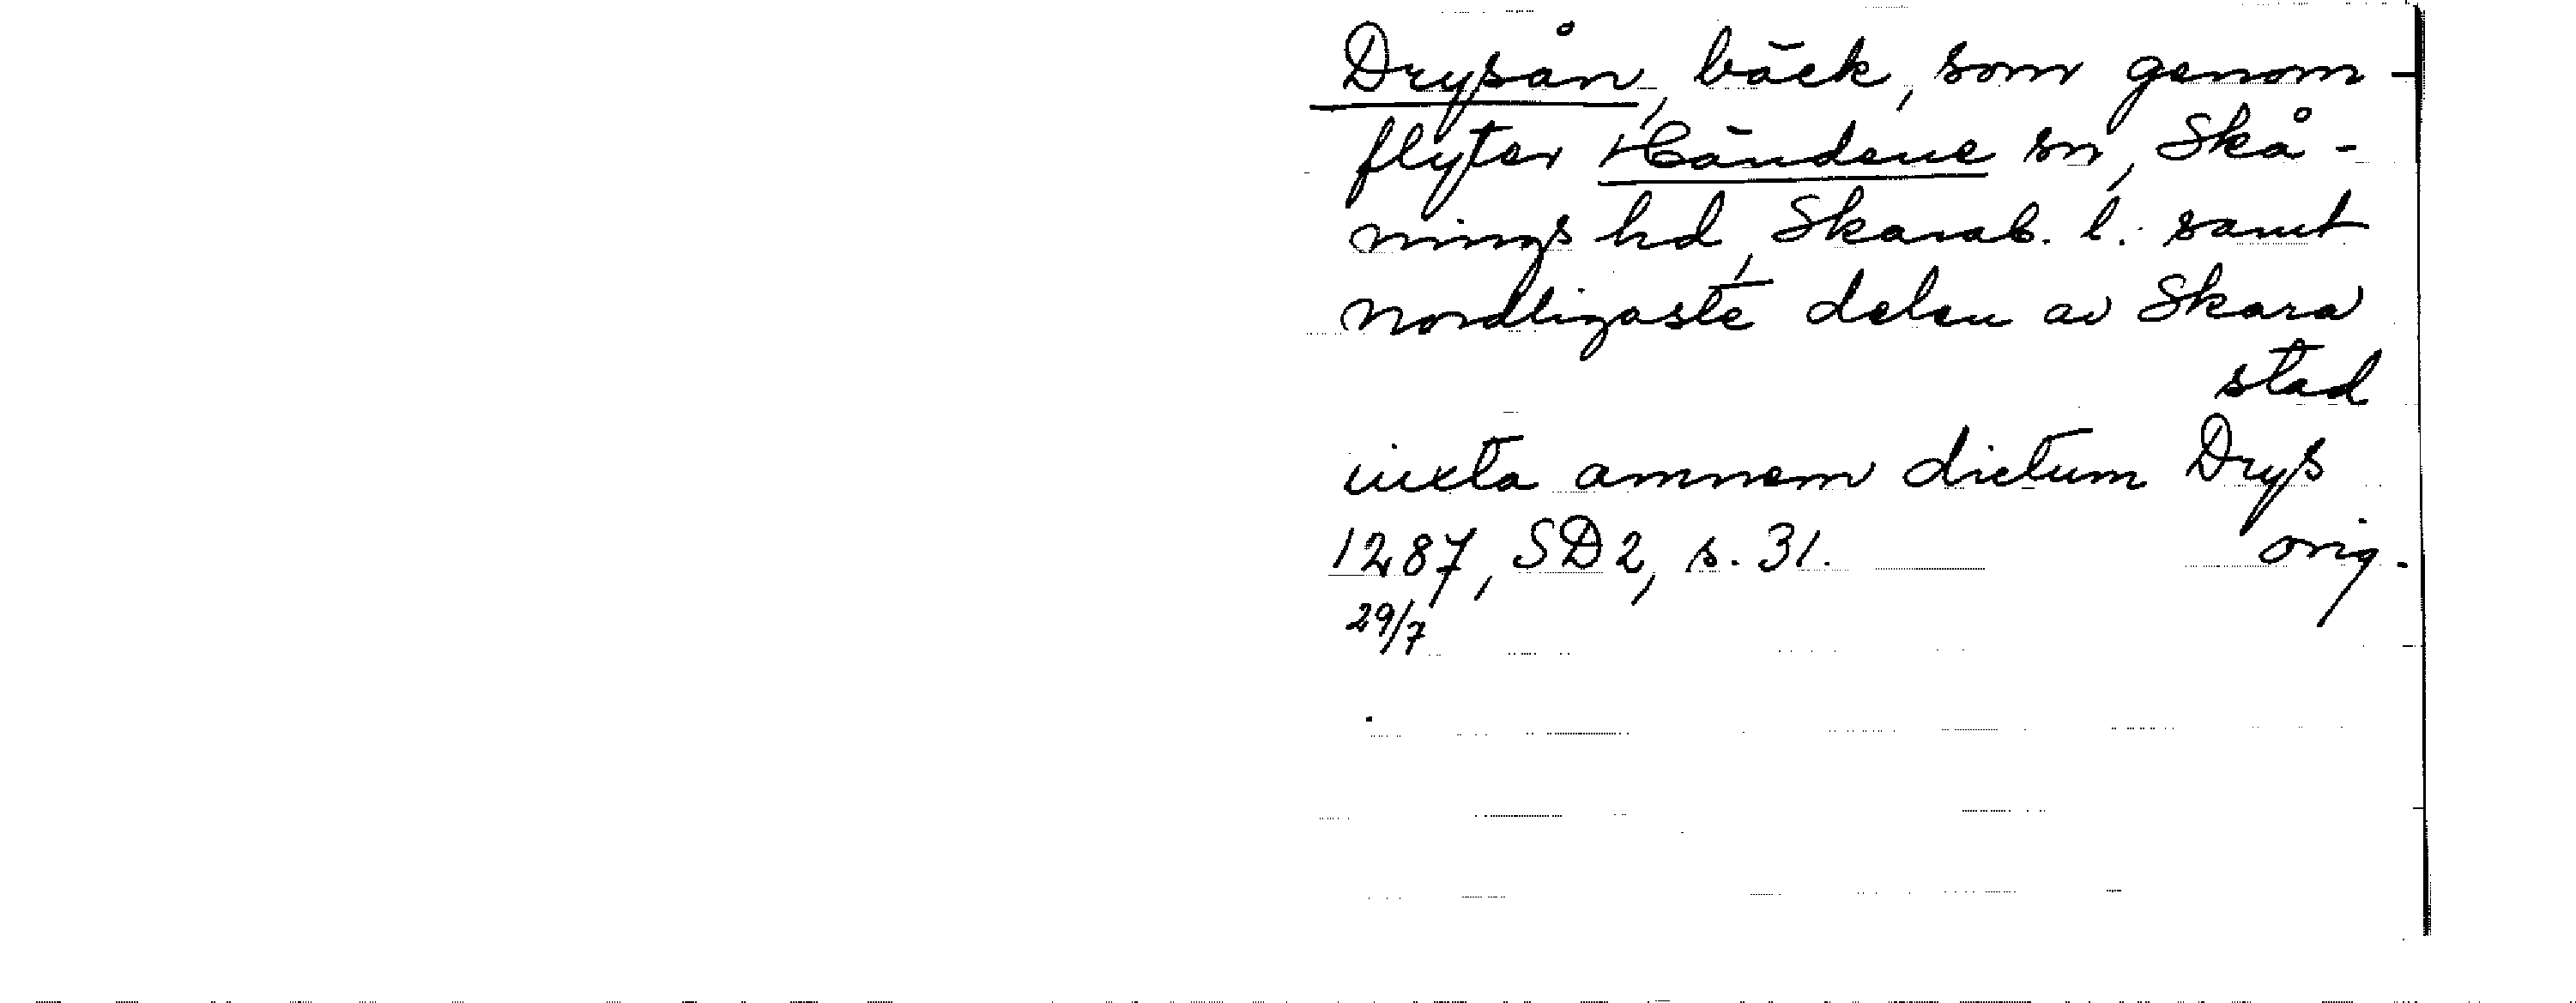 Drysån, bäck, som genom-
flyter Händene sn, Skå-
nings hd, Skarab. l. samt
nordligaste delen av Skara
stad
iuxta amnem dictum Drys
1287, SD2, s. 31. orig.
29/7